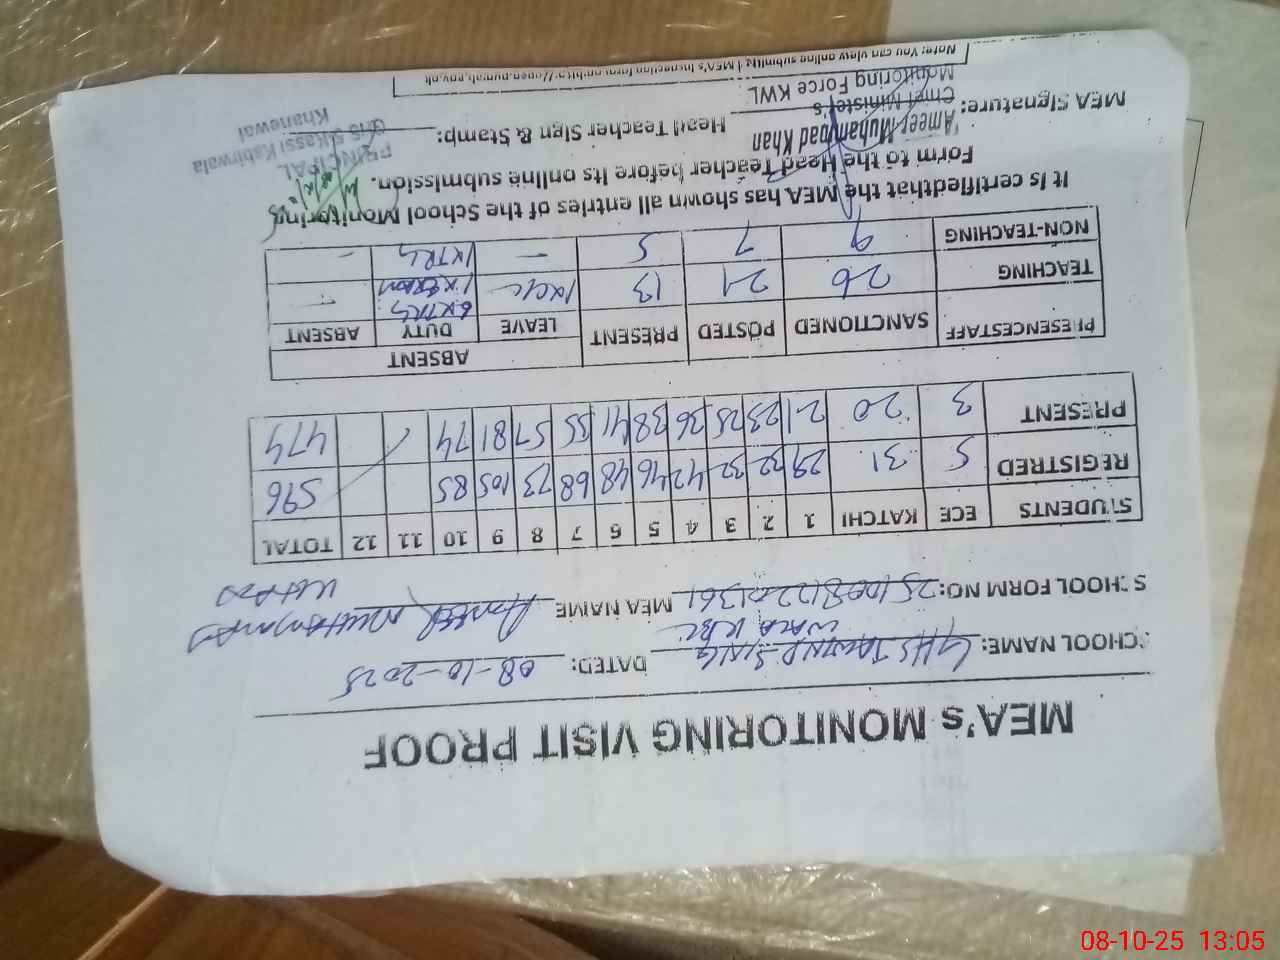 MEA's MONITORING VISIT PROOF
SCHOOL NAME: GHS SING DATED: 08-10-2025
WALA KBL
SCHOOL FORM NO: 25100812201361 MEA NAME Ameer Muhammad
Khan
STUDENTS ECE KATCHI 1 2 3 4 5 6 7 8 9 10 11 12 TOTAL
REGISTRED 5 31 29 32 32 42 46 48 68 73 105 85 596
PRESENT 3 20 21 23 25 36 38 41 55 57 81 74 474
ABSENT
PRESENCESTAFF SANCTIONED POSTED PRESENT LEAVE DUTY ABSENT
TEACHING 26 21 13 1xC/L 6xTRG 1xExam -
NON-TEACHING 9 7 5 - 1xTRG -
It is certifiedthat the MEA has shown all entries of the School Monitoring
Form to the Head Teacher before its online submission.
MEA Signature: Head Teacher Sign & Stamp:
Ameer Muhammad Khan
Chief Minister's
Monitoring Force KWL
PRINCIPAL
GHS 5 Kassi Kabirwala
Khanewal
Note: You can view online submitted MEA's Inspection form on http://open.punjab.gov.pk
08-10-25 13:05